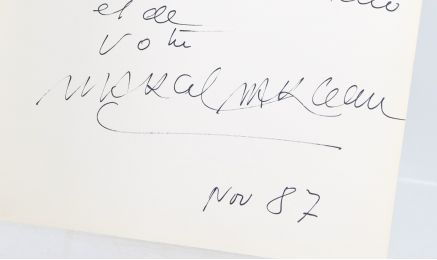 et de
Votre
Marcel Marceau
Nov 87